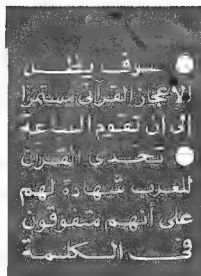 سوف يظل
الاعجاز القرآنى مستمرا
إلى أن تقوم الساعة
تحدى القرآن
للعرب شهادة لهم
على أنهم متفوقون
فى الكلمة